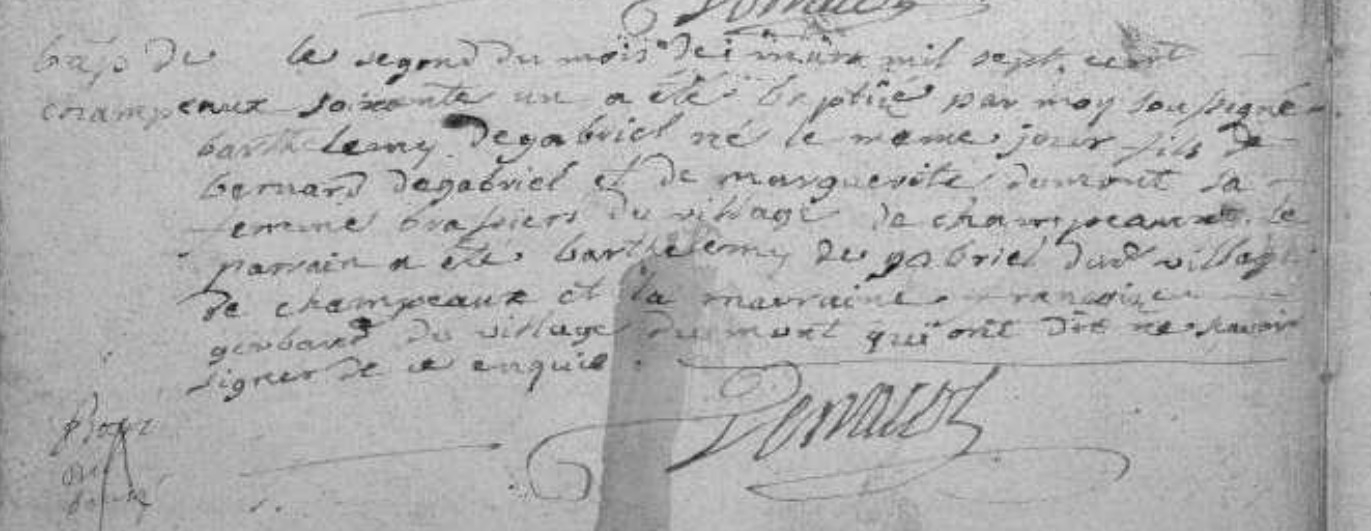 bap de le segond du mois de mars mil sept cent
champeaux soixante un a été baptisé par moy soussigné
barthelemy degabriel né le meme jour fils de
bernard degabriel et de marguerite dumont sa
femme brassiers du village de champeaux le
parrain a été barthelemy de gabriel dud village
de champeaux et la marraine francoize
gerbaud du village dumont qui ont dit ne scavoir
signer de ce enquis.